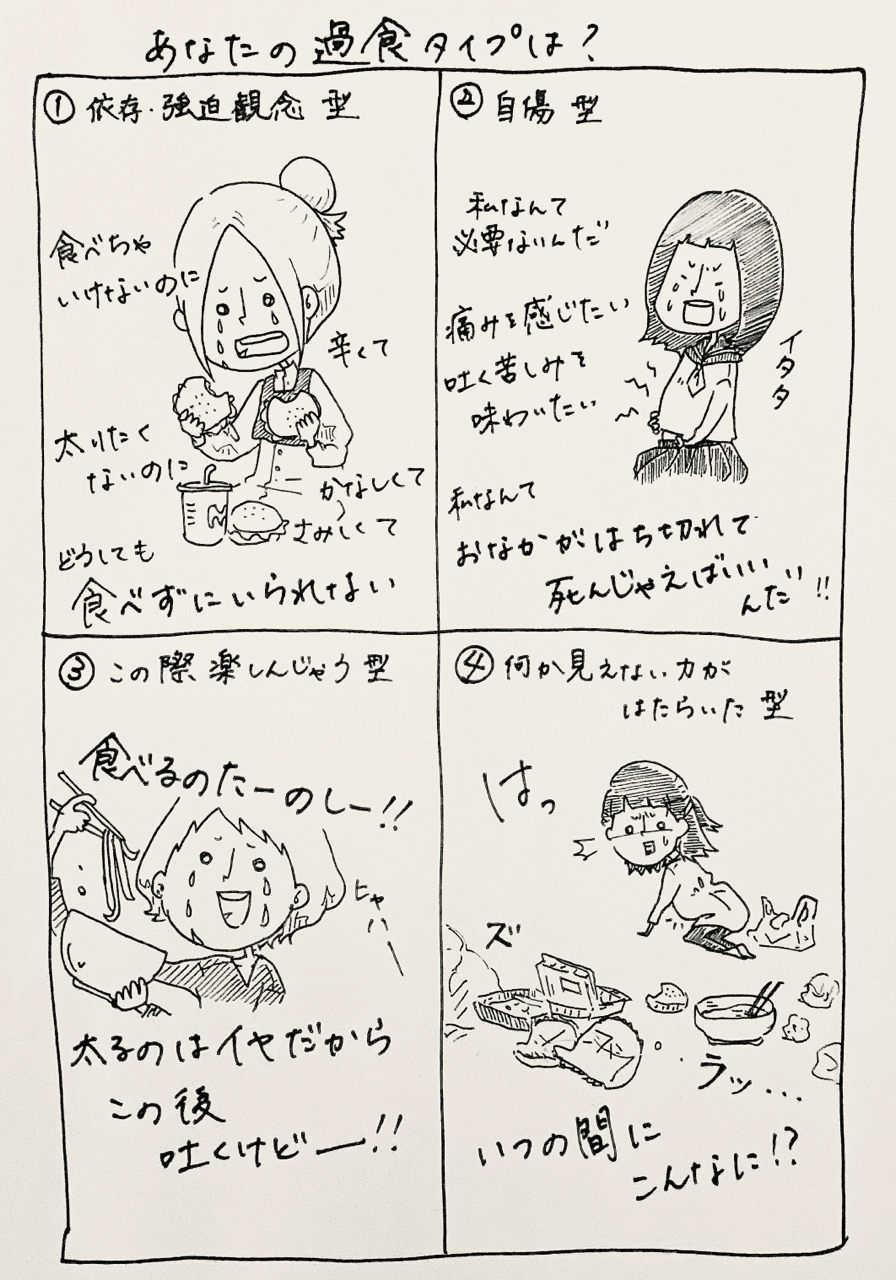 あなたの過食タイプは?
① 依存・強迫観念 型
食べちゃ
いけないのに
辛くて
太りたく
ないのに
かなしくて
さみしくて
どうしても
食べずにいられない
② 自傷 型
私なんて
必要ないんだ
痛みを感じたい
吐く苦しみを
味わいたい
イタタ
私なんて
おなかがはち切れて
死んじゃえばいい
んだ!!
③ この際 楽しんじゃう 型
食べるのたーのしー!!
ヒャハー
太るのはイヤだから
この後
吐くけどー!!
④ 何か見えない力が
はたらいた 型
はっ
ズ
ラッ...
いつの間に
こんなに!?